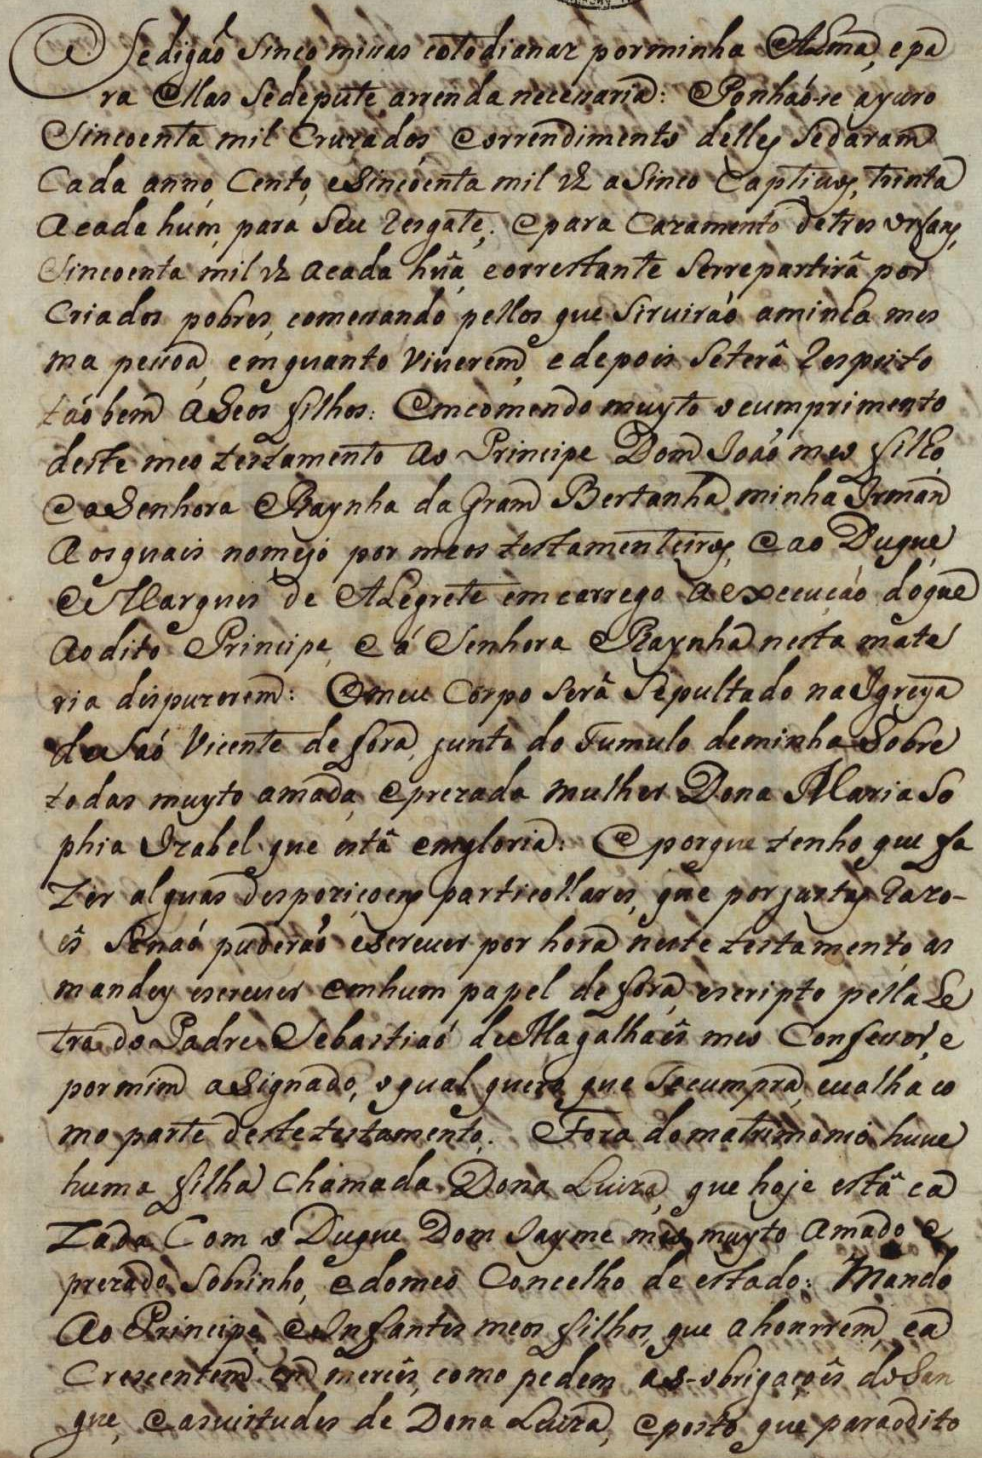 Se digaõ sinco missas cotodianaz por minha Alma, e pa
ra ellas se depute a renda necessaria: Ponhaõ-se a juro
Sincoenta mil Cruzados, e do rendimento delles se daram
Cada anno, Cento, e Sincoenta mil rz a Sinco Captivos, trinta
a cada hum, para seu resgate, e para Cazamento de tres orfans,
Sincoenta mil rz a cada hũa, e o restante se repartirâ por
Criados pobres, comessando pellos que Siruiraõ a minha mes
ma pessoa, em quanto Viuerem, e depois se terâ respeito
taõ bem a seos filhos: Emcomendo muyto o cumprimento
deste meo testamento ao Principe Dom Joaõ meo filho,
e a Senhora Raynha da Gram Bertanha minha Irman
Aos quais nomejo por meos testamenteiros, e ao Duque
e Marques de Alegrete emcarrego a execuçaõ do que
ao dito Principe, e á Senhora Raynha nesta mate
ria dispuzerem: O meu Corpo serâ sepultado na Igreya
de Saõ Vicente de fora, junto do Tumulo de minha Sobre
todas muyto amada, e prezada mulher Dona Maria So
phia Izabel que estâ em gloria: E porque tenho que fa
zer alguas despoziçoens particollares, que por justas razo-
ẽs se naõ puderaõ escreuer por hora neste testamento, as
mandey escreuer em hum papel de fora, escripto pella Le
tra do Padre Sebastiaõ de Magalhaẽs meo Confessor, e
por mim aSignado, o qual quero que se cumpra, e ualha co
mo parte deste testamento. Fora do matrimonio huue
huma filha Chamada Dona Luiza, que hoje estâ ca
zada Com o Duque Dom Jayme meo muyto amado e
prezado Sobrinho, e do meo Concelho de estado: Mando
Ao Principe, e Infantes meos filhos, que a honrrem, e a
Crescentem em mercês, como pedem as obrigaçoẽs do San
gue, e as uirtudes de Dona Luiza, e posto que para o dito